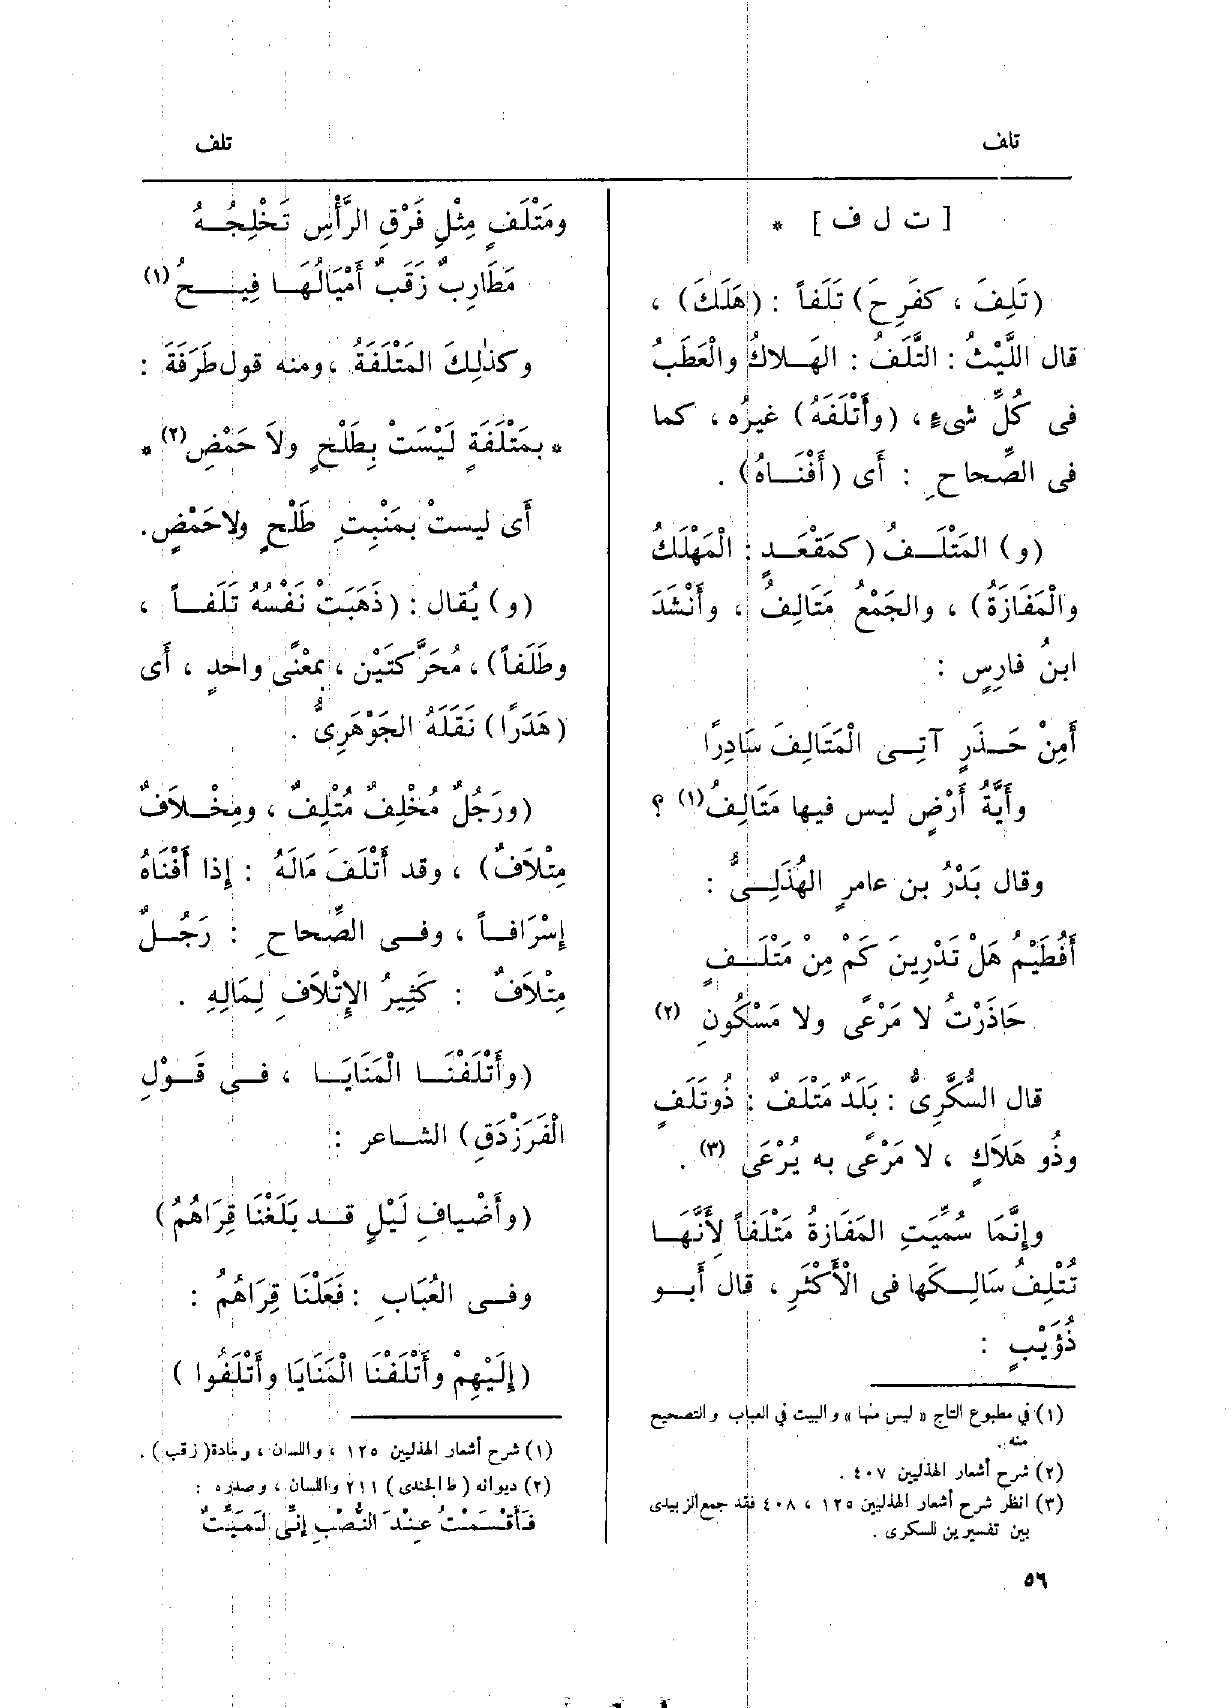 تلف
تلف
[ ت ل ف ] *
(تَلِفَ ، كفَرِحَ) تَلَفاً : (هَلَكَ) ،
قال اللَّيْثُ : التَّلَفُ : الهَلاكُ والْعَطَبُ
فى كُلِّ شىءٍ ، (وأَتْلَفَهُ) غيرُه ، كما
فى الصِّحاحِ : أَى (أَفْنَاهُ) .
(و) المَتْلَفُ (كمَقْعَدٍ : الْمَهْلَكُ
والْمَفَازَةُ) ، والجَمْعُ مَتَالِفُ ، وأَنْشَدَ
ابنُ فارِسٍ :
أَمِنْ حَذَرٍ آتِى الْمَتَالِفَ سَادِرًا
وأَيَّةُ أَرْضٍ ليس فيها مَتَالِفُ (١) ؟
وقال بَدْرُ بن عامرٍ الهُذَلِىُّ :
أَفُطَيْمُ هَلْ تَدْرِينَ كَمْ مِنْ مَتْلَفٍ
حَاذَرْتُ لا مَرْعًى ولا مَسْكُونِ (٢)
قال السُّكَّرِىُّ : بَلَدٌ مَتْلَفٌ : ذُوتَلَفٍ
وذُو هَلاَكٍ ، لا مَرْعًى به يُرْعَى (٣) .
وإِنَّمَا سُمِّيَتِ المَفَازةُ مَتْلَفاً لأَنَّهَا
تُتْلِفُ سَالِكَها فى الْأَكْثَرِ ، قال أَبو
ذُؤَيْبٍ :
(١) في مطبوع التاج « ليس منها » والبيت في العباب والتصحيح
منه .
(٢) شرح أشعار الهذليين ٤٠٧ .
(٣) انظر شرح أشعار الهذليين ١٢٥ ، ٤٠٨ فقد جمع الزبيدى
بين تفسيرين للسكرى .
ومَتْلَفٍ مِثْلِ فَرْقِ الرَّأْسِ تَخْلِجُهُ
مَطَارِبٌ زَقَبٌ أَمْيَالُهَا فِيحُ (١)
وكذٰلِكَ المَتْلَفَةُ ، ومنه قول طَرَفَةَ :
* بمَتْلَفَةٍ لَيْسَتْ بِطَلْحٍ ولاَ حَمْضِ (٢) *
أَى ليستْ بمَنْبِتِ طَلْحٍ ولاحَمْضٍ .
(و) يُقال : (ذَهَبَتْ نَفْسُهُ تَلَفاً ،
وطَلَفاً) ، مُحَرَّكَتَيْن ، بمعْنًى واحدٍ ، أَى
(هَدَرًا) نَقَلَهُ الجَوْهَرِىُّ .
(ورَجُلٌ مُخْلِفٌ مُتْلِفٌ ، ومِخْلاَفٌ
مِتْلاَفٌ) ، وقد أَتْلَفَ مَالَهُ : إِذا أَفْنَاهُ
إِسْرَافاً ، وفى الصِّحاحِ : رَجُلٌ
مِتْلاَفٌ : كَثِيرُ الإِتْلاَفِ لِمَالِهِ .
(وأَتْلَفْنَا الْمَنَايَا ، فى قَوْلِ
الْفَرَزْدَقِ) الشاعر :
(وأَضْيافِ لَيْلٍ قد بَلَغْنَا قِرَاهُمُ)
وفى العُبَابِ : فَعَلْنَا قِرَاهُمُ :
(إِلَيْهِمْ وأَتْلَفْنَا الْمَنَايَا وأَتْلَفُوا )
(١) شرح أشعار الهذليين ١٢٥ ، واللسان ، ومادة (زقب) .
(٢) ديوانه ( ط الجندى ) ٢١١ واللسان ، وصدره :
فَأَقْسَمْتُ عِنْدَ النُّصْبِ إِنِّى لَمَيِّتٌ
٥٦